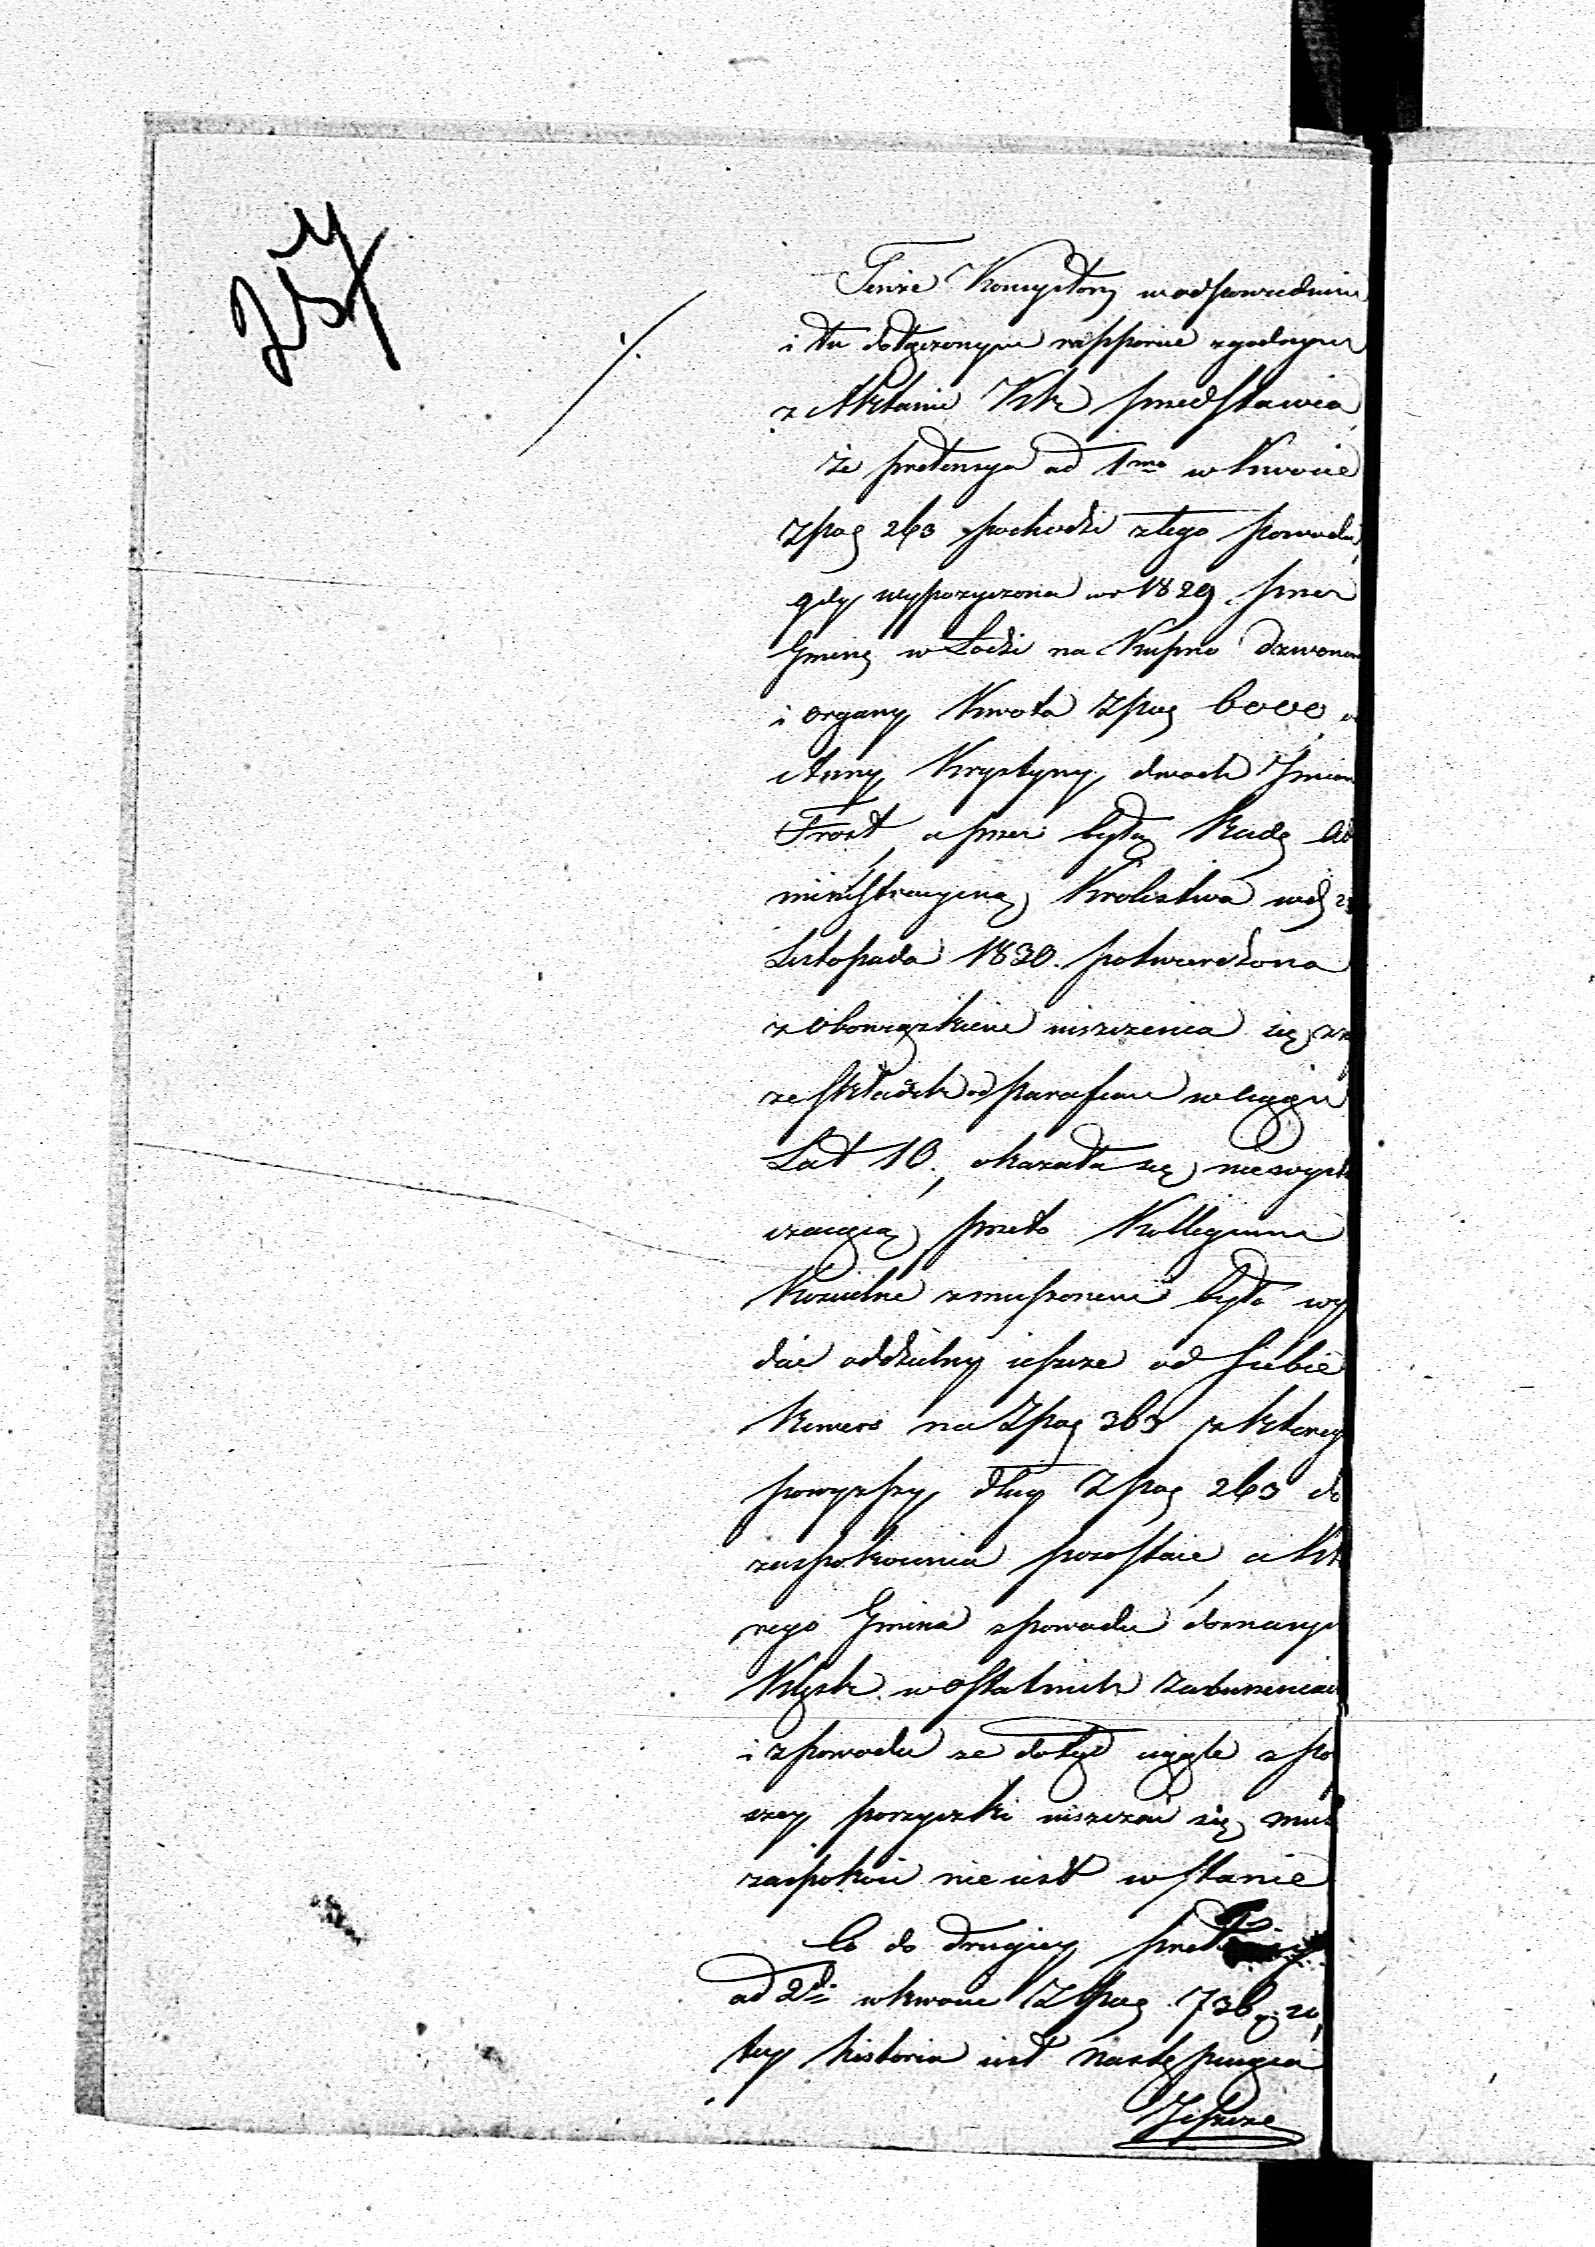 Tenże Konsystorz w odpowiedniu
i tu dołączonym rapporcie zgodnym
z Aktami KRk przedstawia
że pretensya ad 1mo w kwocie
Złpag 263 pochodzi z tego powodu,
gdy wypożyczona w r 1829. przez
Gminę w Łodzi na Kupno dzwonów
i organy Kwota Złpag 6000,
Anny Krystyny dwoch Imion
Frost, a przez byłą Radę Ad
ministracyjną Krolestwa
Listopada 1830. potwierdzona
z obowiązkiem uiszczenia się
ze składek od parafian w ciągu
Lat 10., okazała się niewyst
czaiącą, przeto Kollegium
Kościelne zmuszonem było wy
dać oddzielny ieszcze od siebie
Rewers na Złpag 363 z ktorey
powyższy dług Złpag 263 do
zaspokoienia pozostaie a Któ
rego Gmina z powodu doznanych
Klęsk w ostatnich zaburzeniach
i z powodu że dotąd ciągle z
szey pożyczki uiszczać się musi
zaspokoić nie iest w stanie
Co do drugiey
ad 2do w kwocie Złpag 736
tey historia iest następuiąca
Jeszcze